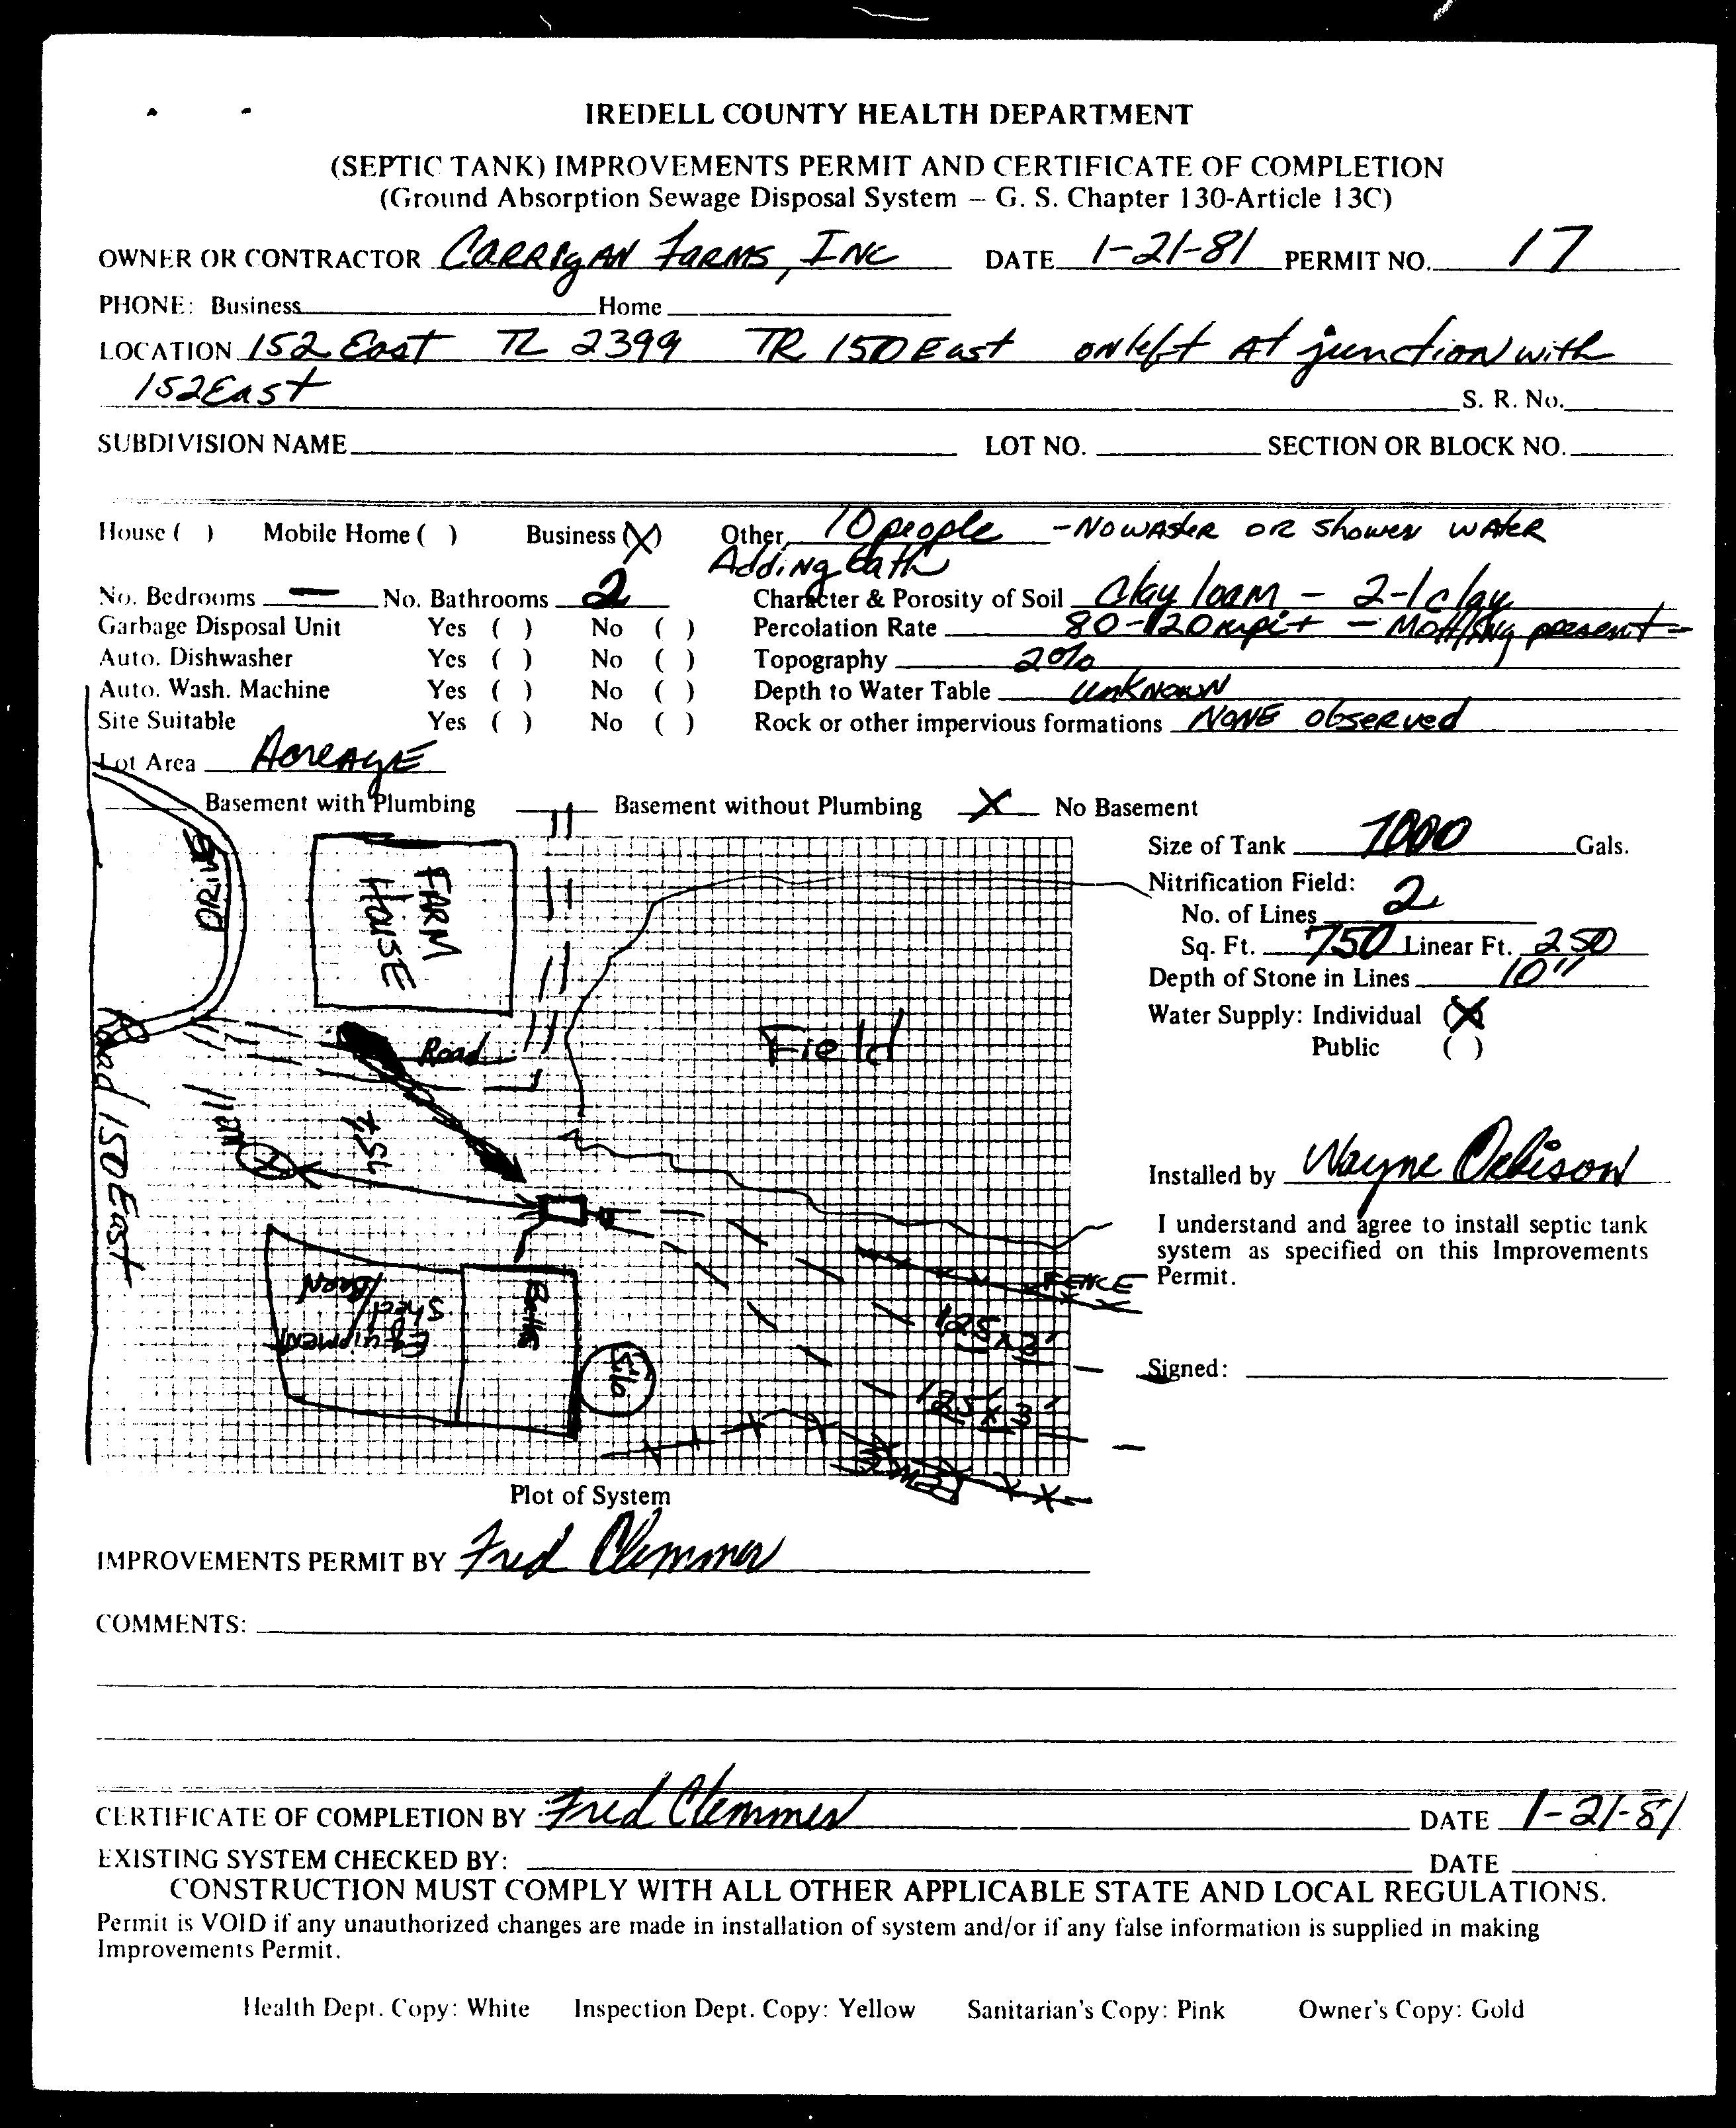 IREDELL COUNTY HEALTH DEPARTMENT
(SEPTIC TANK) IMPROVEMENTS PERMIT AND CERTIFICATE OF COMPLETION
(Ground Absorption Sewage Disposal System — G. S. Chapter 130-Article 13C)
OWNER OR CONTRACTOR Carrigan Farms, Inc DATE 1-21-81 PERMIT NO. 17
PHONE: Business Home
LOCATION 152 East TL 2399 TR 150 East on left At junction with
152 East S. R. No.
SUBDIVISION NAME LOT NO. SECTION OR BLOCK NO.
House ( ) Mobile Home ( ) Business (X) Other 10 people - No washer or shower water
Adding bath
No. Bedrooms — No. Bathrooms 2 Character & Porosity of Soil clay loam - 2-1 clay
Garbage Disposal Unit Yes ( ) No ( ) Percolation Rate 80-120 mpi+ - Mottling present -
Auto. Dishwasher Yes ( ) No ( ) Topography 2%
Auto. Wash. Machine Yes ( ) No ( ) Depth to Water Table unknown
Site Suitable Yes ( ) No ( ) Rock or other impervious formations NONE observed
Lot Area Acreage
Basement with Plumbing Basement without Plumbing X No Basement
Size of Tank 1000 Gals.
Nitrification Field:
No. of Lines 2
Sq. Ft. 750 Linear Ft. 250
Depth of Stone in Lines 10"
Water Supply: Individual (X)
Public ( )
DRIVE
FARM
HOUSE
Road
Field
Road 150 East
Well
Equipment
Shed/
Barn
Silo
FENCE
125 x 3'
125 x 3'
FENCE
Installed by Wayne Orbison
I understand and agree to install septic tank
system as specified on this Improvements
Permit.
Signed:
Plot of System
IMPROVEMENTS PERMIT BY Fred Clemmer
COMMENTS:
CERTIFICATE OF COMPLETION BY Fred Clemmer DATE 1-21-81
EXISTING SYSTEM CHECKED BY: DATE
CONSTRUCTION MUST COMPLY WITH ALL OTHER APPLICABLE STATE AND LOCAL REGULATIONS.
Permit is VOID if any unauthorized changes are made in installation of system and/or if any false information is supplied in making
Improvements Permit.
Health Dept. Copy: White Inspection Dept. Copy: Yellow Sanitarian's Copy: Pink Owner's Copy: Gold